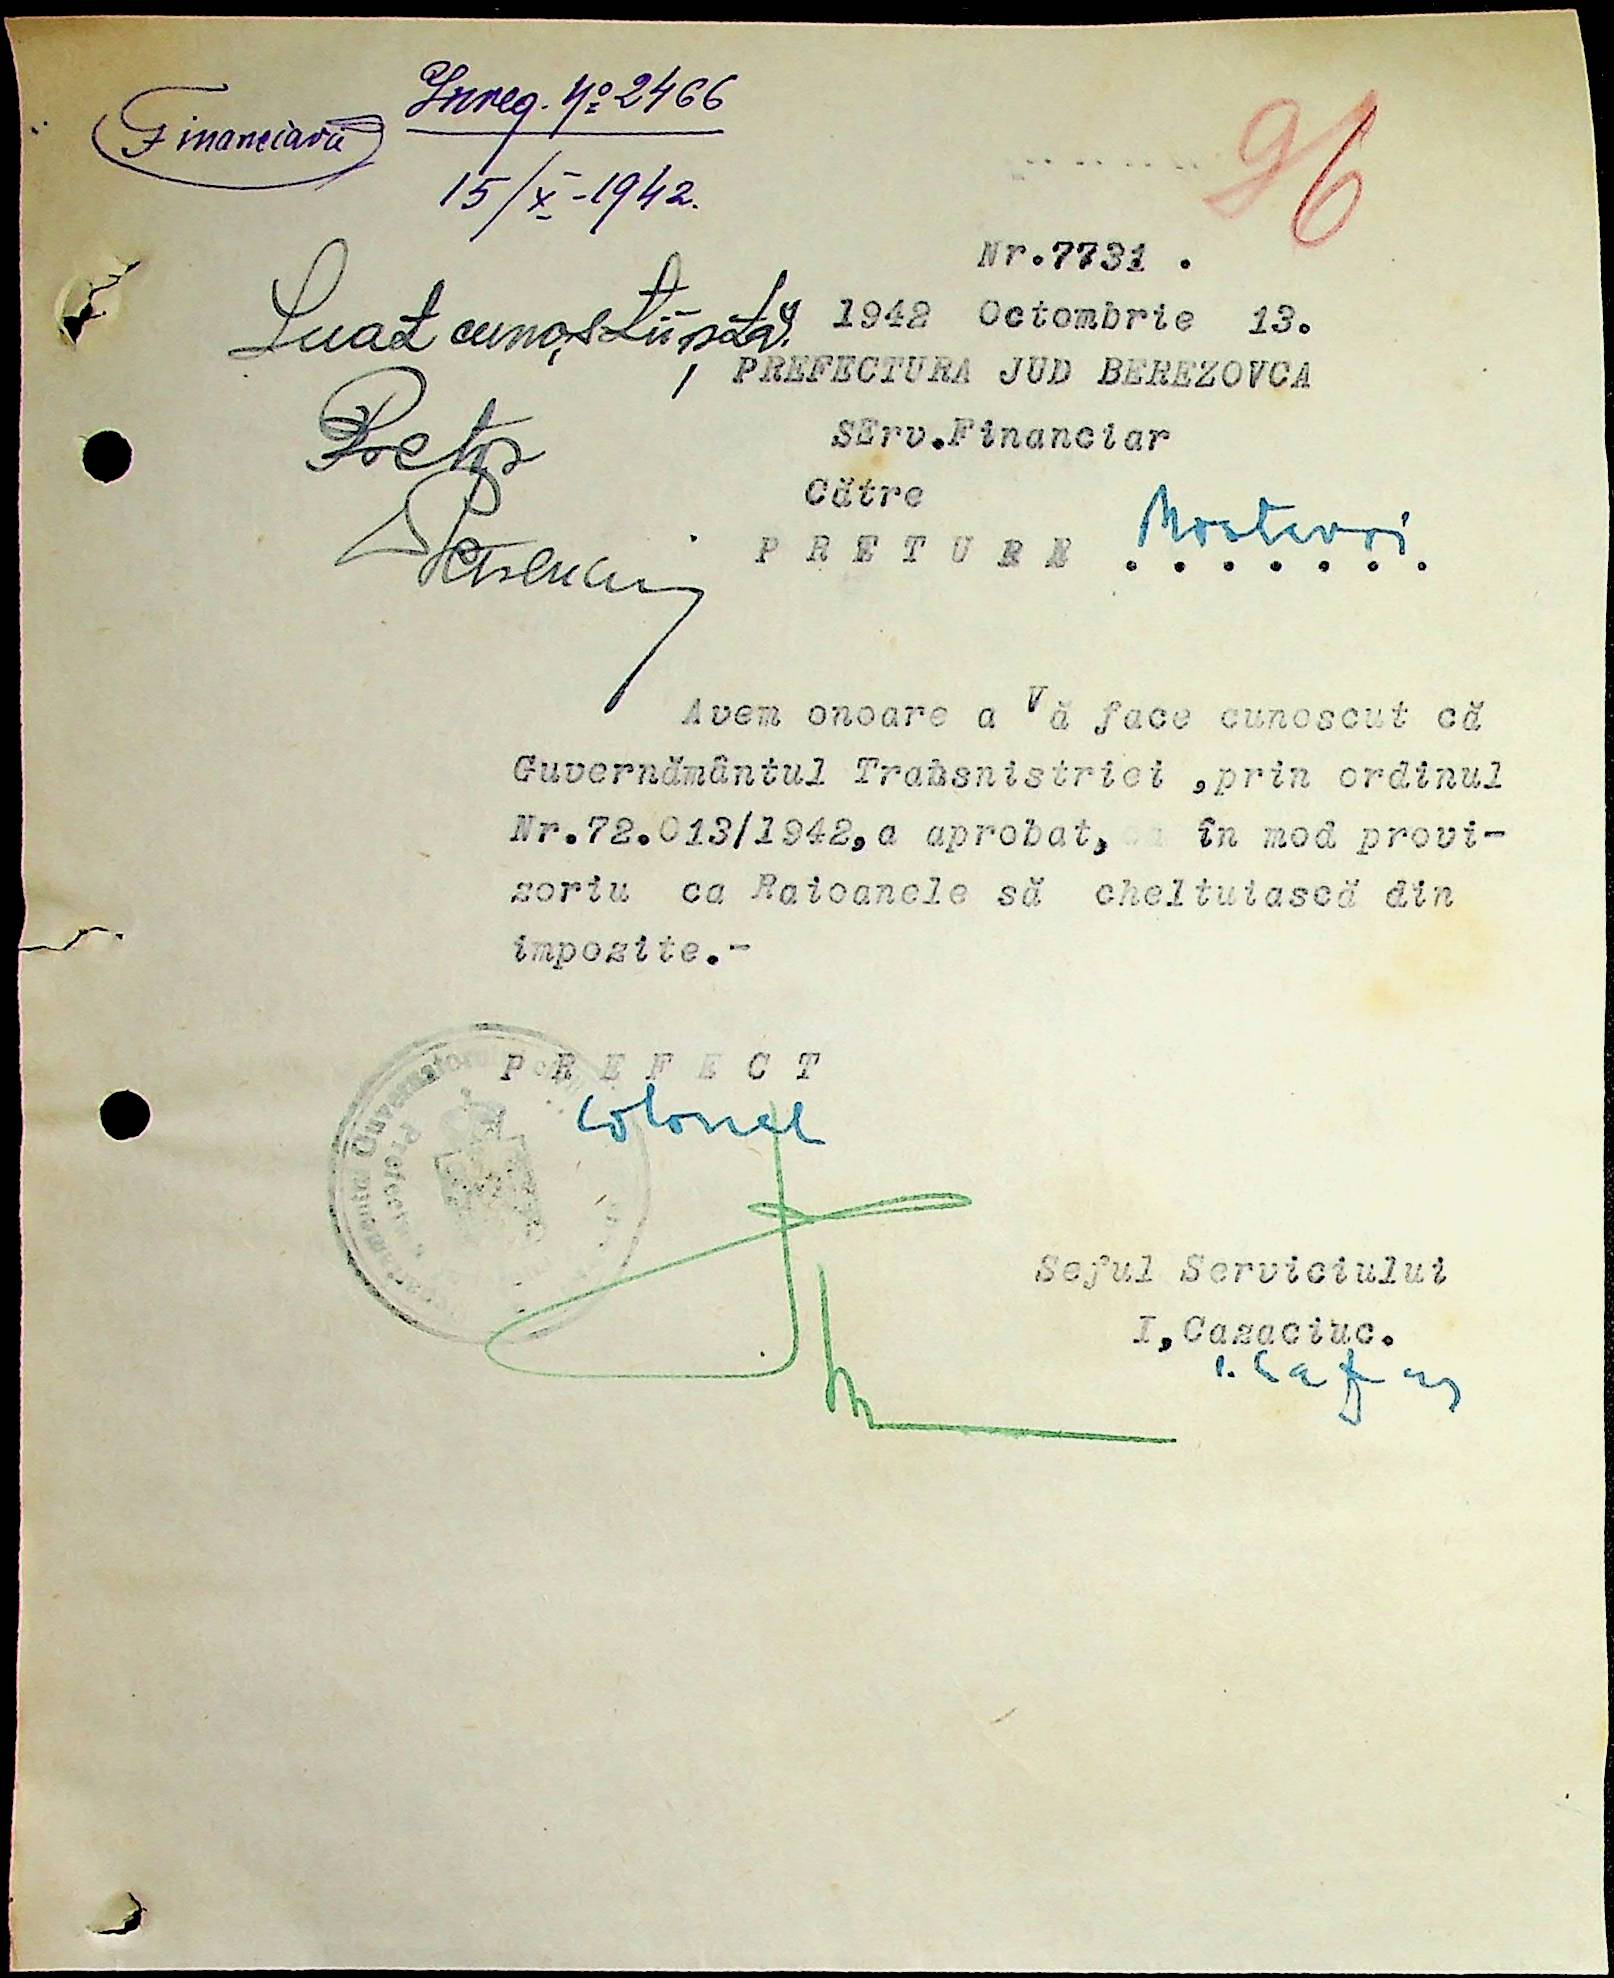 Financiară
Inreg. No 2466
15/X-1942.
96
Nr.7731 .
Luat cunoștiință.
1942 Octombrie 13.
PREFECTURA JUD BEREZOVCA
SErv.Financiar
Pretor
Către
P R E T U R E Mostovoi
Avem onoare a Vă face cunoscut că
Guvernământul Transnistriei ,prin ordinul
Nr.72.013/1942,a aprobat, în mod provi-
zoriu ca Raioanele să cheltuiască din
impozite.-
P R E F E C T
Colonel
Guvernatorul
Prefectura
Seful Serviciului
I,Cazaciuc.